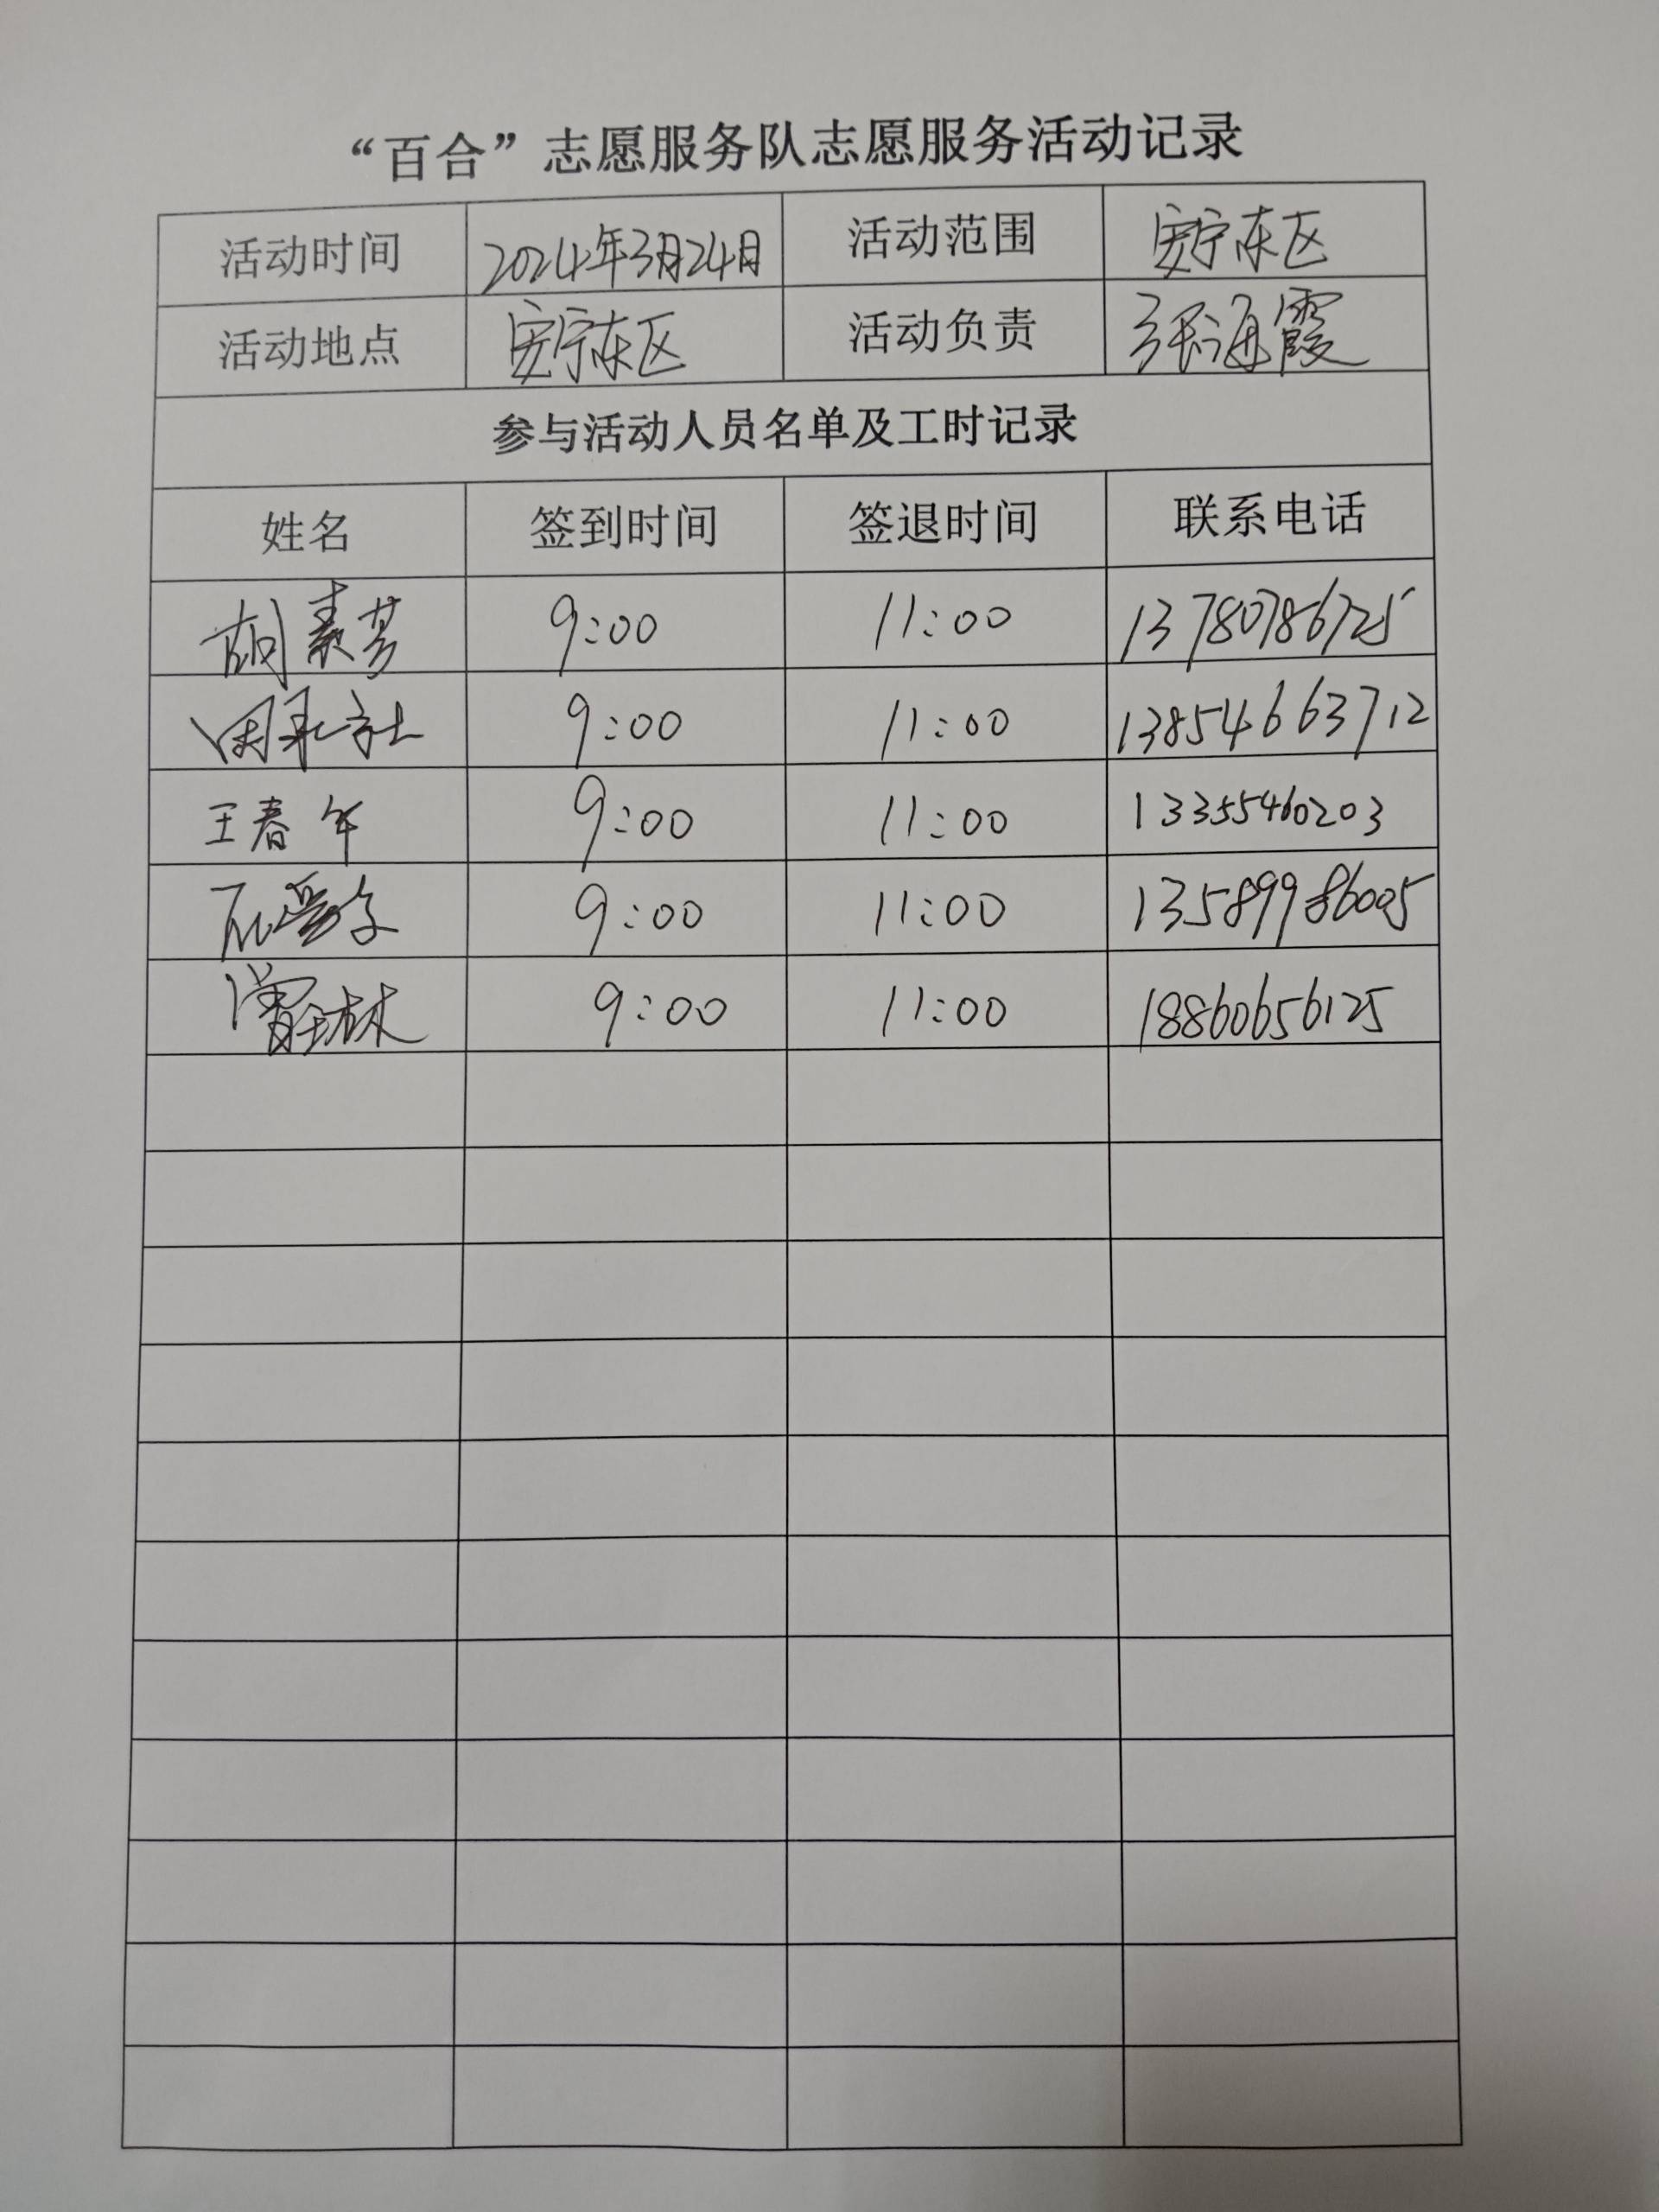 “百合”志愿服务队志愿服务活动记录
活动时间 2024年3月24日 活动范围 安宁东区
活动地点 安宁东区 活动负责 张海霞
参与活动人员名单及工时记录
姓名 签到时间 签退时间 联系电话
胡素芳 9:00 11:00 13780786725
周承社 9:00 11:00 13854663712
王春年 9:00 11:00 13355460203
9:00 11:00 13589986005
9:00 11:00 18860656125